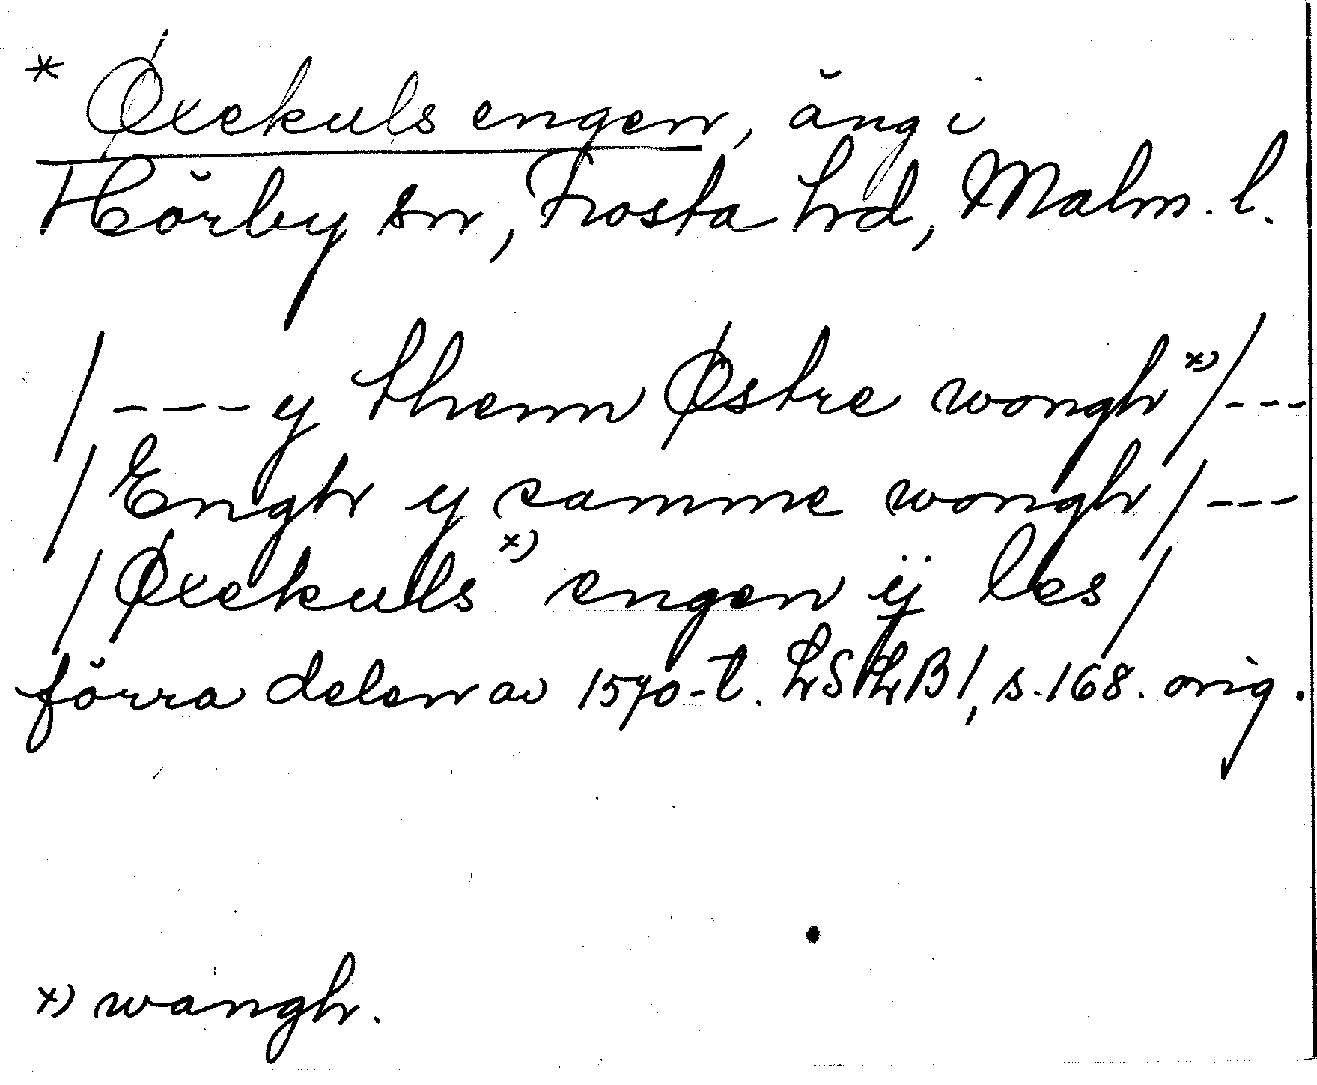 * Øxekuls engen, äng i
Hörby sn, Frosta hd, Malm. l.
/---y thenn Østre wongh *)/---
/Engh y samme wongh/---
/Øxekuls *) engen ÿ les/
förra delen av 1570-t. LSLB1, s.168. orig.
*) wangh.